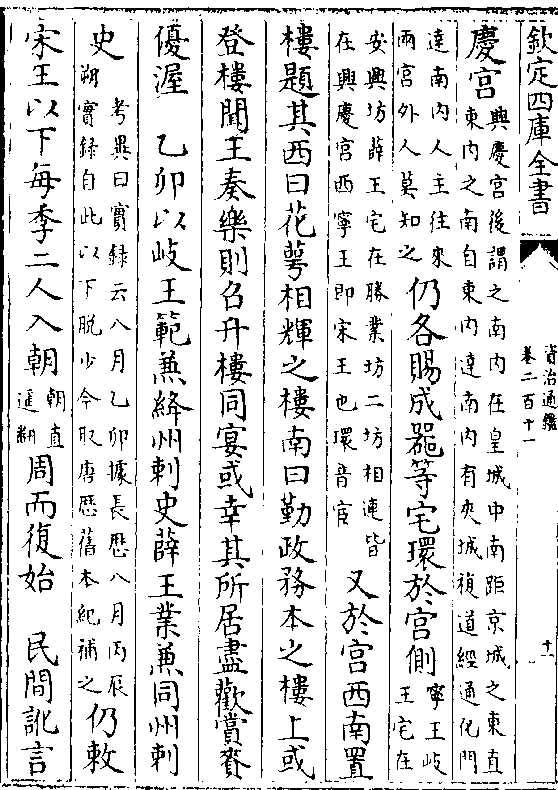 欽定四庫全書
資治通鑑
卷二百十一
十一
慶宮
興慶宮後謂之南内在皇城中南距京城之東直
東内之南自東内達南内有夾城複道經通化門
達南内人主往來
兩宮外人莫知之
仍各賜成器等宅環於宮側
寧王岐
王宅在
安興坊薛王宅在勝業坊二坊相連皆
在興慶宮西寧王即宋王也環音宦
又於宮西南置
樓題其西曰花萼相輝之樓南曰勤政務本之樓上或
登樓聞王奏樂則召升樓同宴或幸其所居盡歡賞賚
優渥　乙卯以岐王範兼絳州刺史薛王業兼同州刺
史
考異曰實録云八月乙卯據長歷八月丙辰
朔實録自此以下脱少今取唐歷舊本紀補之
仍敕
宋王以下每季二人入朝
朝直
遥翻
周而復始　民間訛言